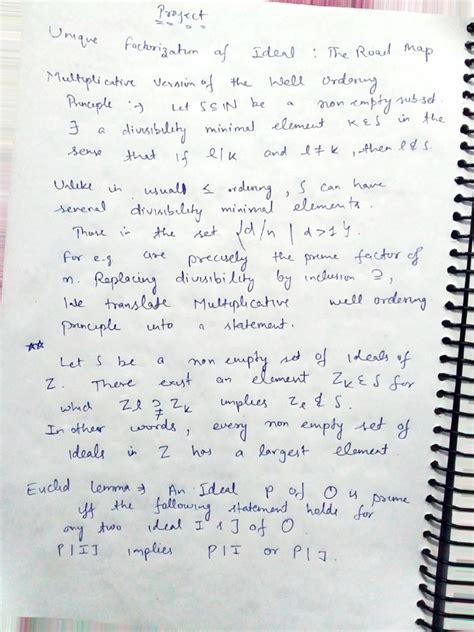 Project
Unique Factorization of Ideal : The Road Map
Multiplicative Version of the Well Ordering
Principle :→ Let S⊆ℕ be a non empty subset
∃ a divisibility minimal element K∈S in the
sense that if l|K and l≠K, then l∉S.
Unlike in usual ≤ ordering, S can have
several divisibility minimal elements.
Those in the set {d/n | d>1}.
For e.g are precisely the prime factor of
n. Replacing divisibility by inclusion ⊇,
We translate Multiplicative well ordering
principle into a statement.
☆☆
Let S be a non empty set of ideals of
Z. There exist an element Zk∈S for
which Zl ⊋ Zk implies Zl∉S.
In other words, every non empty set of
ideals in Z has a largest element.
Euclid Lemma → An Ideal P of O is prime
iff the following statement holds for
any two ideal I & J of O
P|IJ implies P|I or P|J.